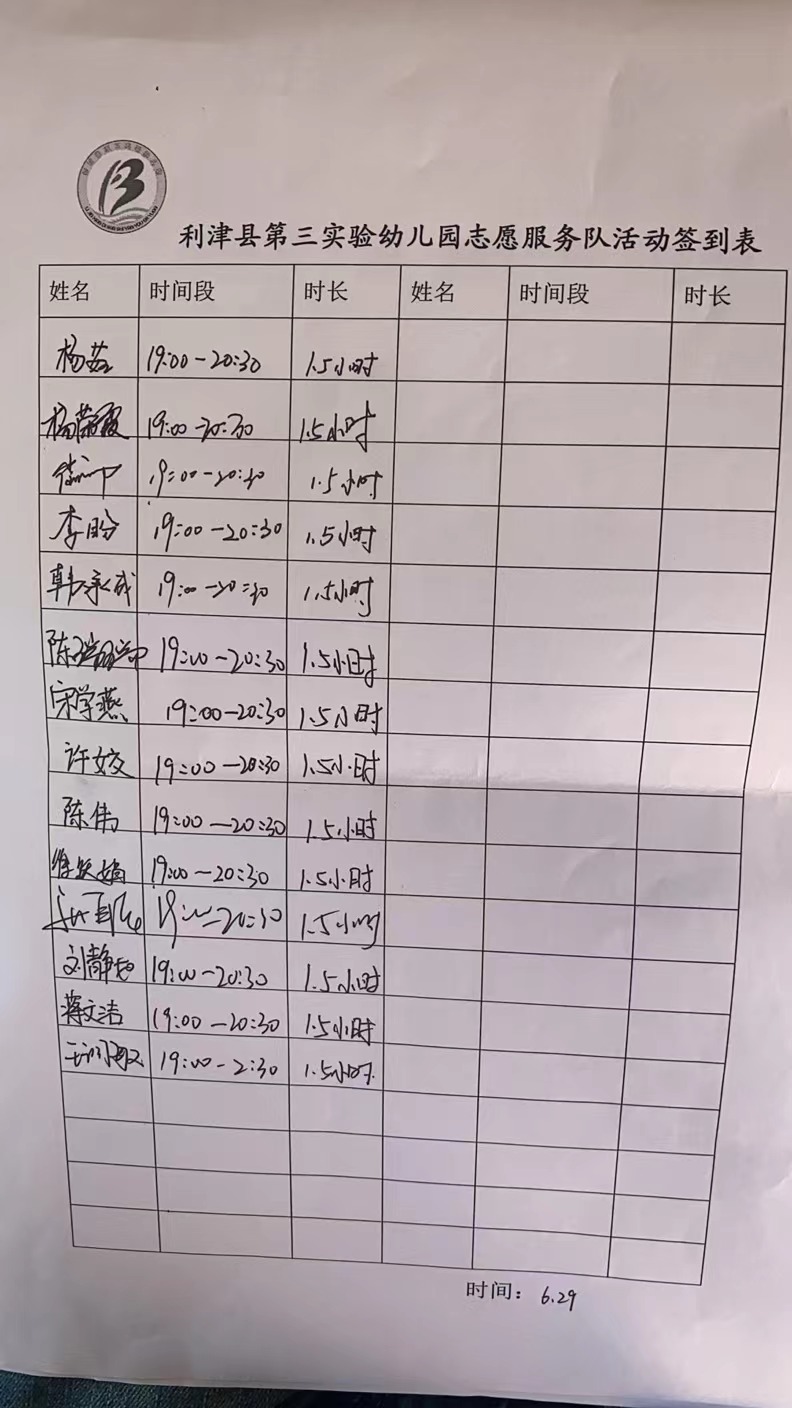 利津县第三实验幼儿园志愿服务队活动签到表
姓名 时间段 时长 姓名 时间段 时长
杨茹 19:00-20:30 1.5小时
杨荣霞 19:00-20:30 1.5小时
19:00-20:30 1.5小时
李盼 19:00-20:30 1.5小时
韩永成 19:00-20:30 1.5小时
陈 19:00-20:30 1.5小时
宋学燕 19:00-20:30 1.5小时
许姣 19:00-20:30 1.5小时
陈伟 19:00-20:30 1.5小时
娟 19:00-20:30 1.5小时
19:00-20:30 1.5小时
刘静 19:00-20:30 1.5小时
蒋文洁 19:00-20:30 1.5小时
19:00-2:30 1.5小时
时间：6.29